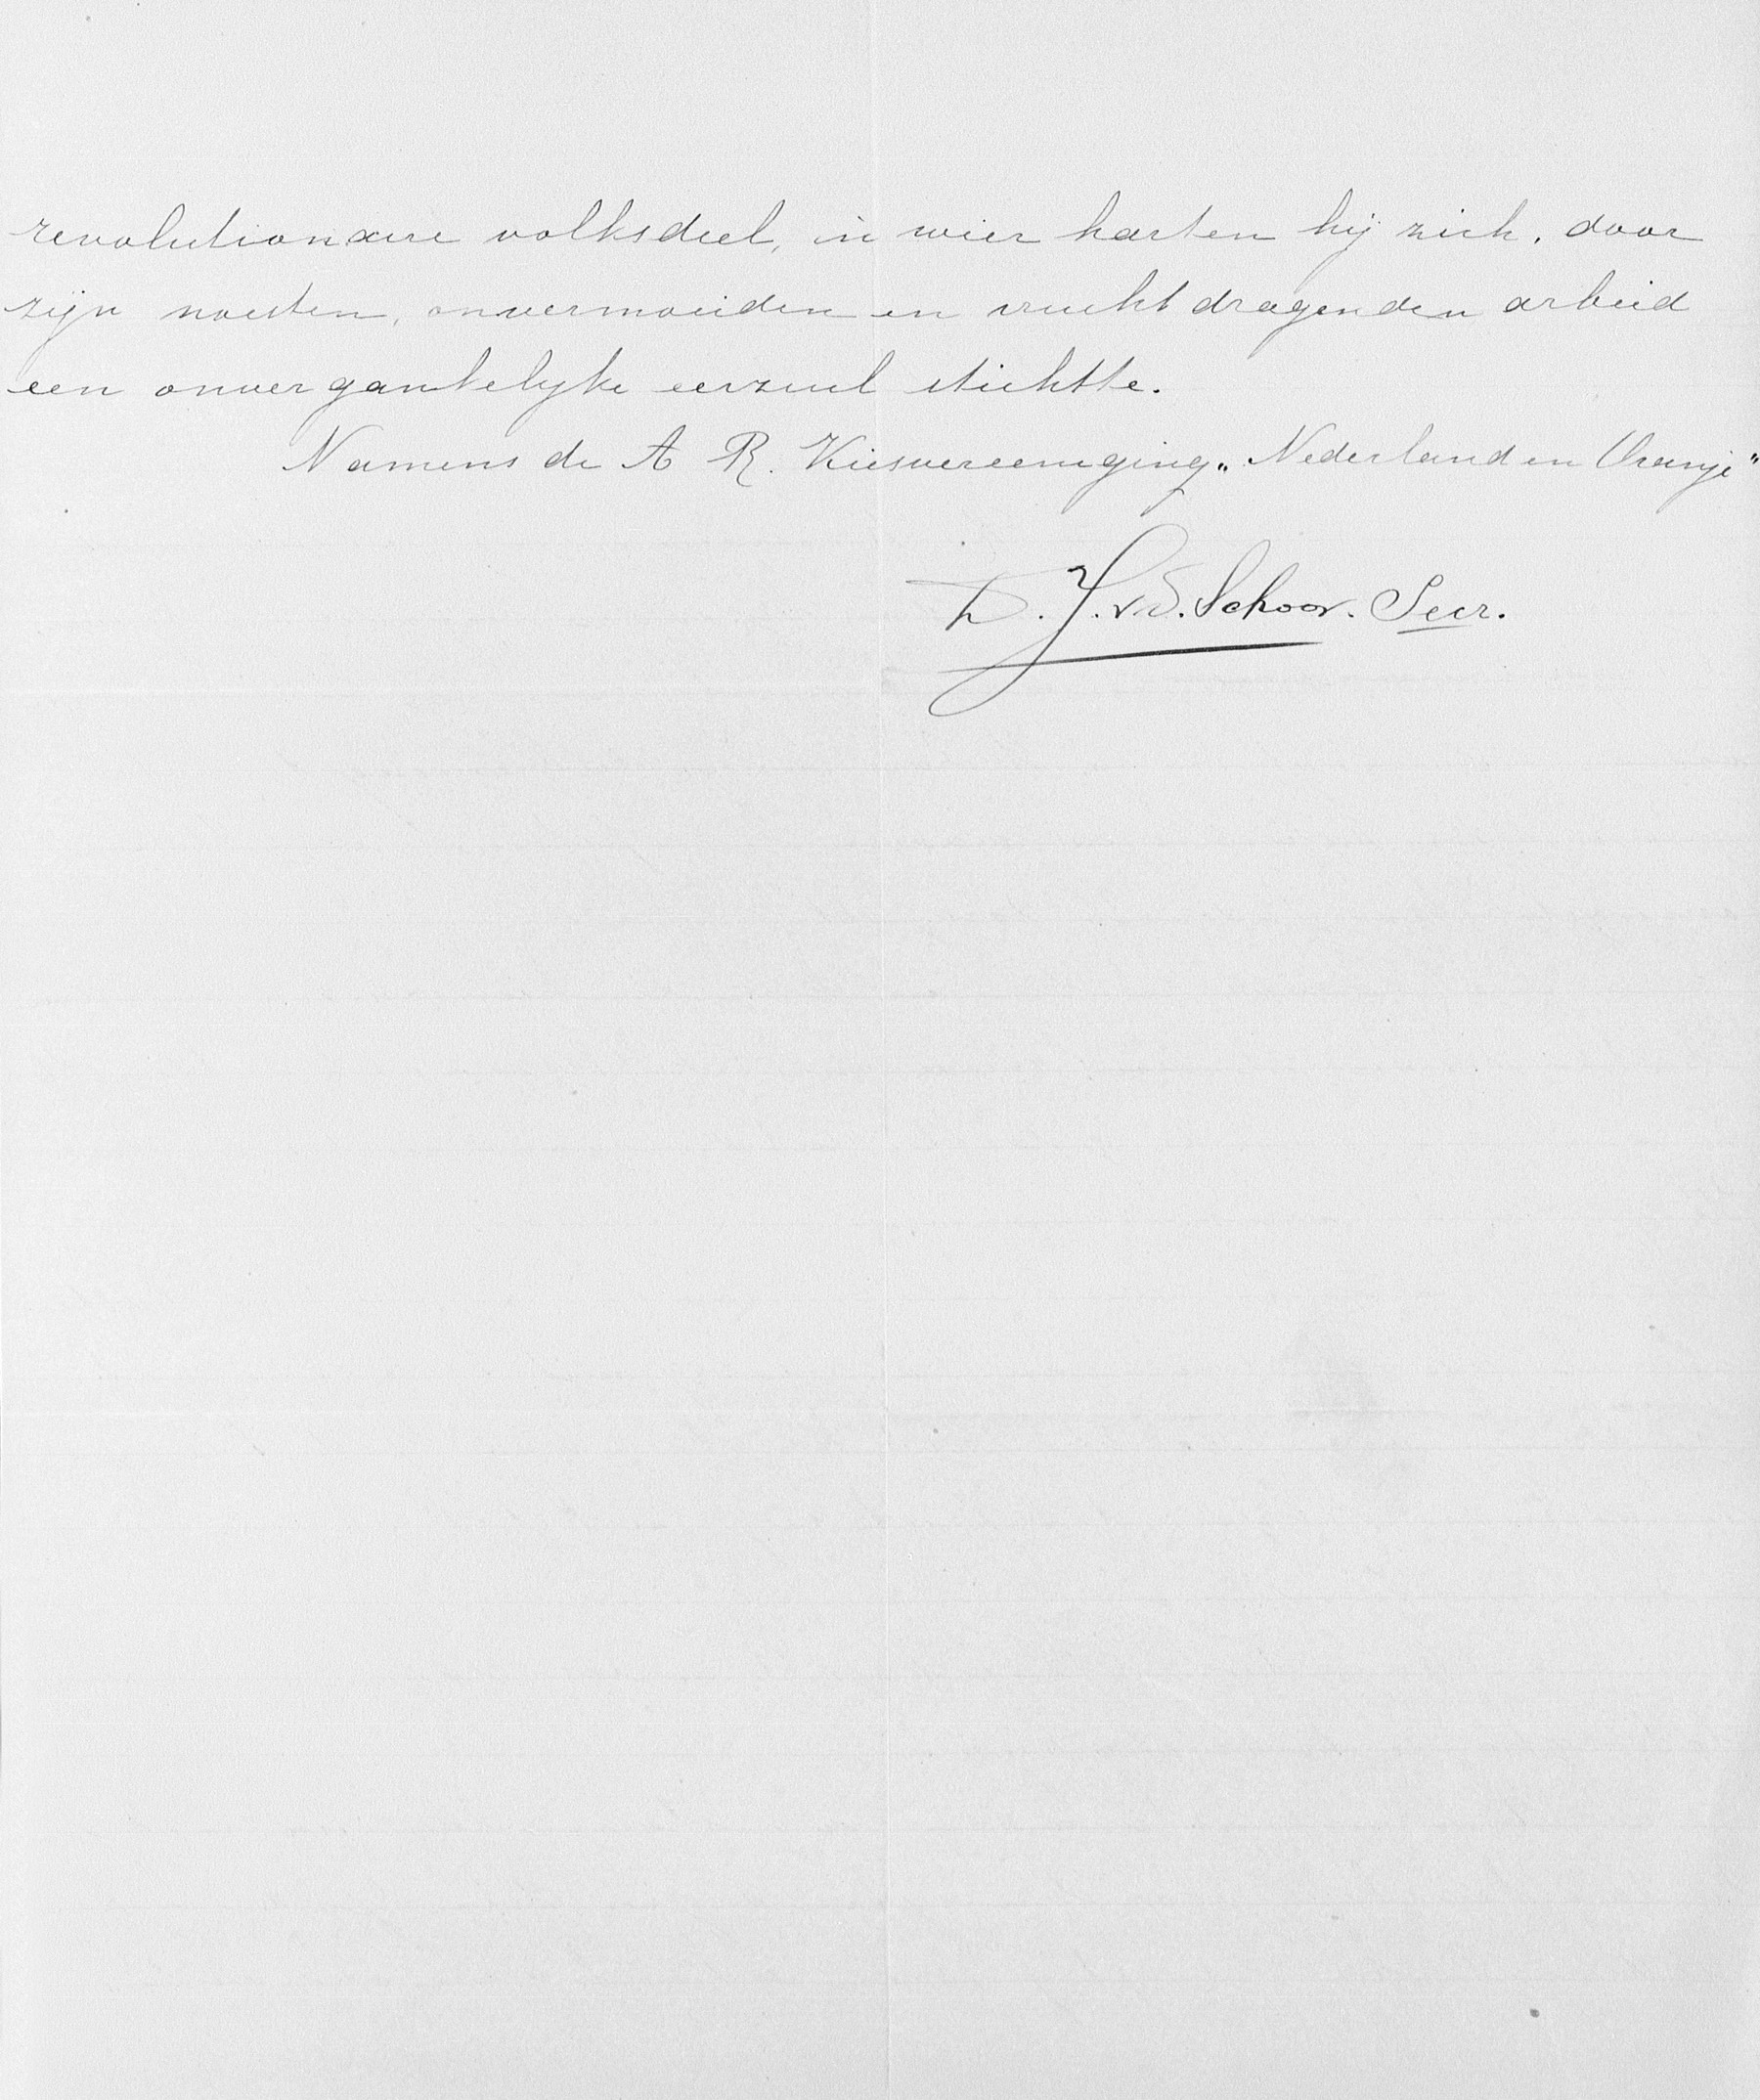 revolutionaire volksdeel, in wier harten hij zich, door
zijn noesten, onvermoeiden en vruchtdragenden arbeid
een onvergankelijke eerzuil stichtte.
Namens de A R. Kiesvereeniging „Nederland en Oranje"
D. J. v. d. Schoor. Secr.